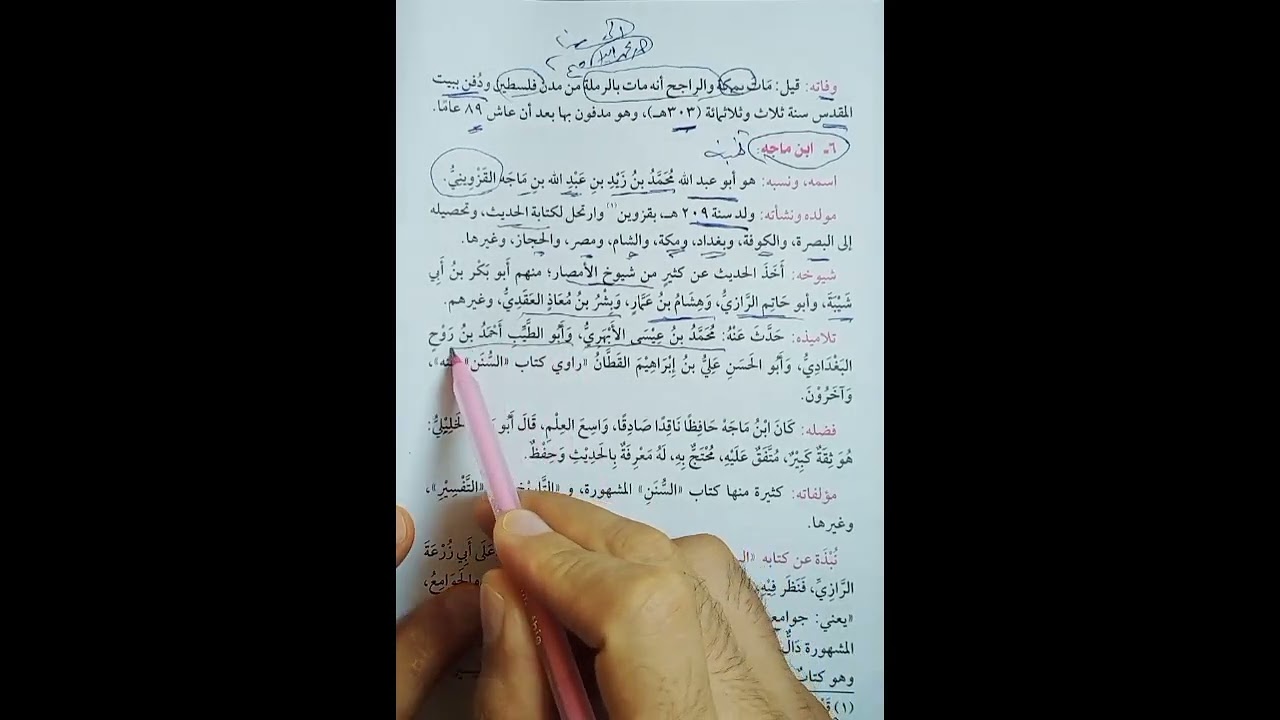 وفاته: قيل: مَات بمكة والراجح أنه مات بالرملة من مدن فلسطين ودُفن ببيت
المقدس سنة ثلاث وثلاثمائة (٣٠٣هـ)، وهو مدفون بها بعد أن عاش ٨٩ عامًا.
٦- ابن ماجه:
اسمه، ونسبه: هو أبو عبد الله مُحَمَّدُ بنُ زَيْدِ بنِ عَبْدِ الله بنِ مَاجَه القَزْوِينِيُّ.
مولده ونشأته: ولد سنة ٢٠٩ هـ، بقزوين(١) وارتحل لكتابة الحديث، وتحصيله
إلى البصرة، والكوفة، وبغداد، ومكة، والشام، ومصر، والحجاز، وغيرها.
شيوخه: أَخَذَ الحديث عن كثيرٍ من شيوخ الأمصار؛ منهم أَبو بَكْر بنُ أَبِي
شَيْبَةَ، وأبو حَاتِم الرَّازِيُّ، وَهِشَامُ بنُ عَمَّارٍ، وَبِشْرُ بنُ مُعَاذٍ العَقَدِيُّ، وغيرهم.
تلاميذه: حَدَّثَ عَنْهُ: مُحَمَّدُ بنُ عِيْسَى الأَبْهَرِيُّ، وَأَبُو الطَّيِّبِ أَحْمَدُ بنُ رَوْحٍ
البَغْدَادِيُّ، وَأَبُو الحَسَنِ عَلِيُّ بنُ إِبْرَاهِيْمَ القَطَّانُ «راوي كتاب «السُّنَن»
وَآخَرُوْنَ.
فضله: كَانَ ابْنُ مَاجَهْ حَافِظًا نَاقِدًا صَادِقًا، وَاسِعَ العِلْمِ، قَالَ أَبُو الخَلِيْلِيُّ:
هُوَ ثِقَةٌ كَبِيْرٌ، مُتَّفَقٌ عَلَيْهِ، مُحْتَجٌّ بِهِ، لَهُ مَعْرِفَةٌ بِالحَدِيْثِ وَحِفْظٌ.
مؤلفاته: كثيرة منها كتاب «السُّنَنِ» المشهورة، و «التَّفْسِيْرِ»،
وغيرها.
نُبْذَة عن كتابه عَلَى أَبِي زُرْعَةَ
الرَّازِيِّ، فَنَظَرَ فِيْهِ، الجَوَامِعُ،
«يعني: جوامع
المشهورة دَالٌّ
وهو كتاب
(١)